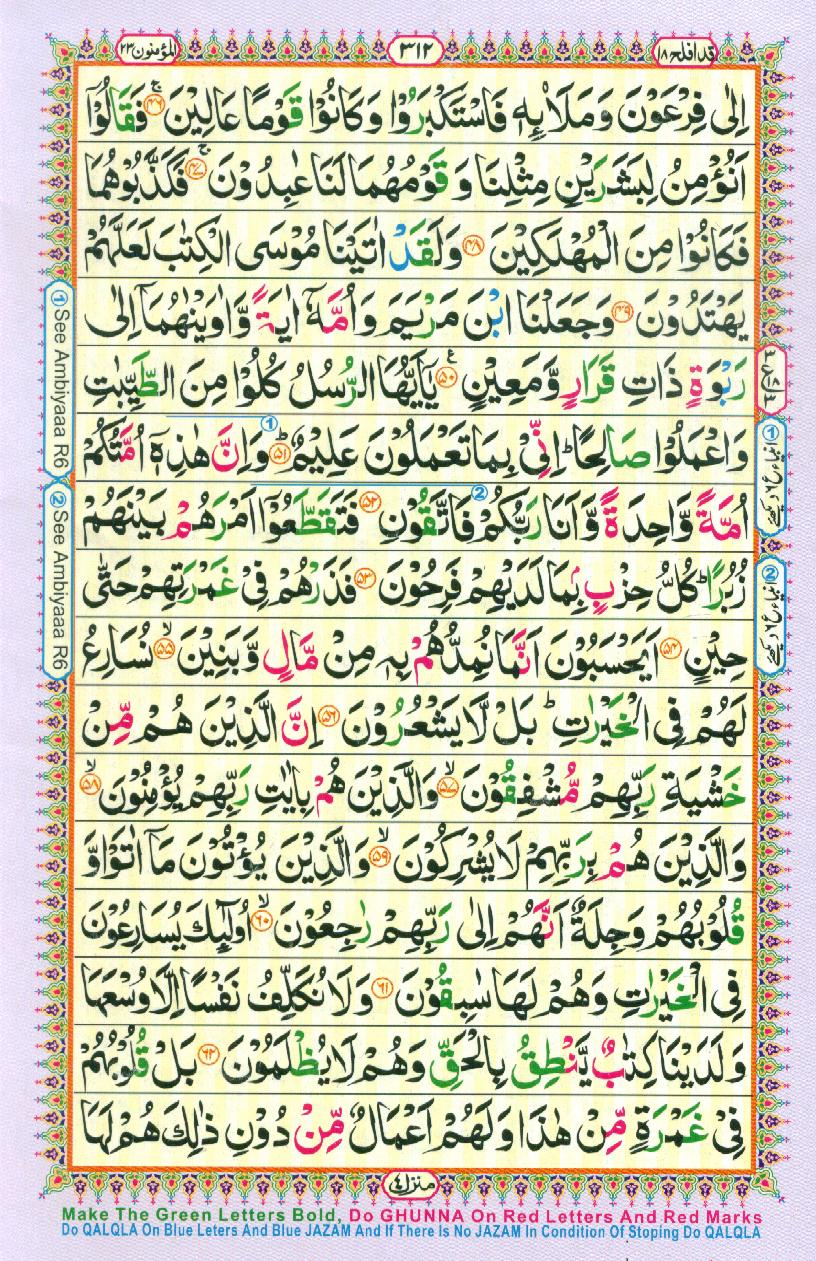 قد افلح ١٨
٣١٢
المؤمنون ٢٣
اِلٰى فِرْعَوْنَ وَمَلَا۟ىِٕهٖ فَاسْتَكْبَرُوْا وَكَانُوْا قَوْمًا عَالِيْنَ ۚ ﴿۴۶﴾ فَقَالُوْۤا
اَنُؤْمِنُ لِبَشَرَيْنِ مِثْلِنَا وَ قَوْمُهُمَا لَنَا عٰبِدُوْنَ ۚ ﴿۴۷﴾ فَكَذَّبُوْهُمَا
فَكَانُوْا مِنَ الْمُهْلَكِيْنَ ﴿۴۸﴾ وَلَقَدْ اٰتَيْنَا مُوْسَى الْكِتٰبَ لَعَلَّهُمْ
يَهْتَدُوْنَ ﴿۴۹﴾ وَجَعَلْنَا ابْنَ مَرْيَمَ وَاُمَّهٗۤ اٰيَةً وَّاٰوَيْنٰهُمَاۤ اِلٰى
رَبْوَةٍ ذَاتِ قَرَارٍ وَّمَعِيْنٍ ﴿۵۰﴾ ع يٰۤاَيُّهَا الرُّسُلُ كُلُوْا مِنَ الطَّيِّبٰتِ
وَاعْمَلُوْا صَالِحًا ؕ اِنِّيْ بِمَا تَعْمَلُوْنَ عَلِيْمٌ ؕ ﴿۵۱﴾ وَاِنَّ هٰذِهٖۤ اُمَّتُكُمْ
اُمَّةً وَّاحِدَةً وَّاَنَا رَبُّكُمْ فَاتَّقُوْنِ ﴿۵۲﴾ فَتَقَطَّعُوْۤا اَمْرَهُمْ بَيْنَهُمْ
زُبُرًا ؕ كُلُّ حِزْبٍۭ بِمَا لَدَيْهِمْ فَرِحُوْنَ ﴿۵۳﴾ فَذَرْهُمْ فِيْ غَمْرَتِهِمْ حَتّٰى
حِيْنٍ ﴿۵۴﴾ اَيَحْسَبُوْنَ اَنَّمَا نُمِدُّهُمْ بِهٖ مِنْ مَّالٍ وَّبَنِيْنَ ۙ ﴿۵۵﴾ نُسَارِعُ
لَهُمْ فِى الْخَيْرٰتِ ؕ بَلْ لَّا يَشْعُرُوْنَ ﴿۵۶﴾ اِنَّ الَّذِيْنَ هُمْ مِّنْ
خَشْيَةِ رَبِّهِمْ مُّشْفِقُوْنَ ۙ ﴿۵۷﴾ وَالَّذِيْنَ هُمْ بِاٰيٰتِ رَبِّهِمْ يُؤْمِنُوْنَ ۙ ﴿۵۸﴾
وَالَّذِيْنَ هُمْ بِرَبِّهِمْ لَا يُشْرِكُوْنَ ۙ ﴿۵۹﴾ وَالَّذِيْنَ يُؤْتُوْنَ مَاۤ اٰتَوْا وَّ
قُلُوْبُهُمْ وَجِلَةٌ اَنَّهُمْ اِلٰى رَبِّهِمْ رٰجِعُوْنَ ۙ ﴿۶۰﴾ اُولٰٓىِٕكَ يُسَارِعُوْنَ
فِى الْخَيْرٰتِ وَهُمْ لَهَا سٰبِقُوْنَ ﴿۶۱﴾ وَلَا نُكَلِّفُ نَفْسًا اِلَّا وُسْعَهَا
وَلَدَيْنَا كِتٰبٌ يَّنْطِقُ بِالْحَقِّ وَهُمْ لَا يُظْلَمُوْنَ ﴿۶۲﴾ بَلْ قُلُوْبُهُمْ
فِيْ غَمْرَةٍ مِّنْ هٰذَا وَلَهُمْ اَعْمَالٌ مِّنْ دُوْنِ ذٰلِكَ هُمْ لَهَا
① See Ambiyaaa R6
② See Ambiyaaa R6
منزل ٤
Make The Green Letters Bold, Do GHUNNA On Red Letters And Red Marks
Do QALQLA On Blue Leters And Blue JAZAM And If There Is No JAZAM In Condition Of Stoping Do QALQLA